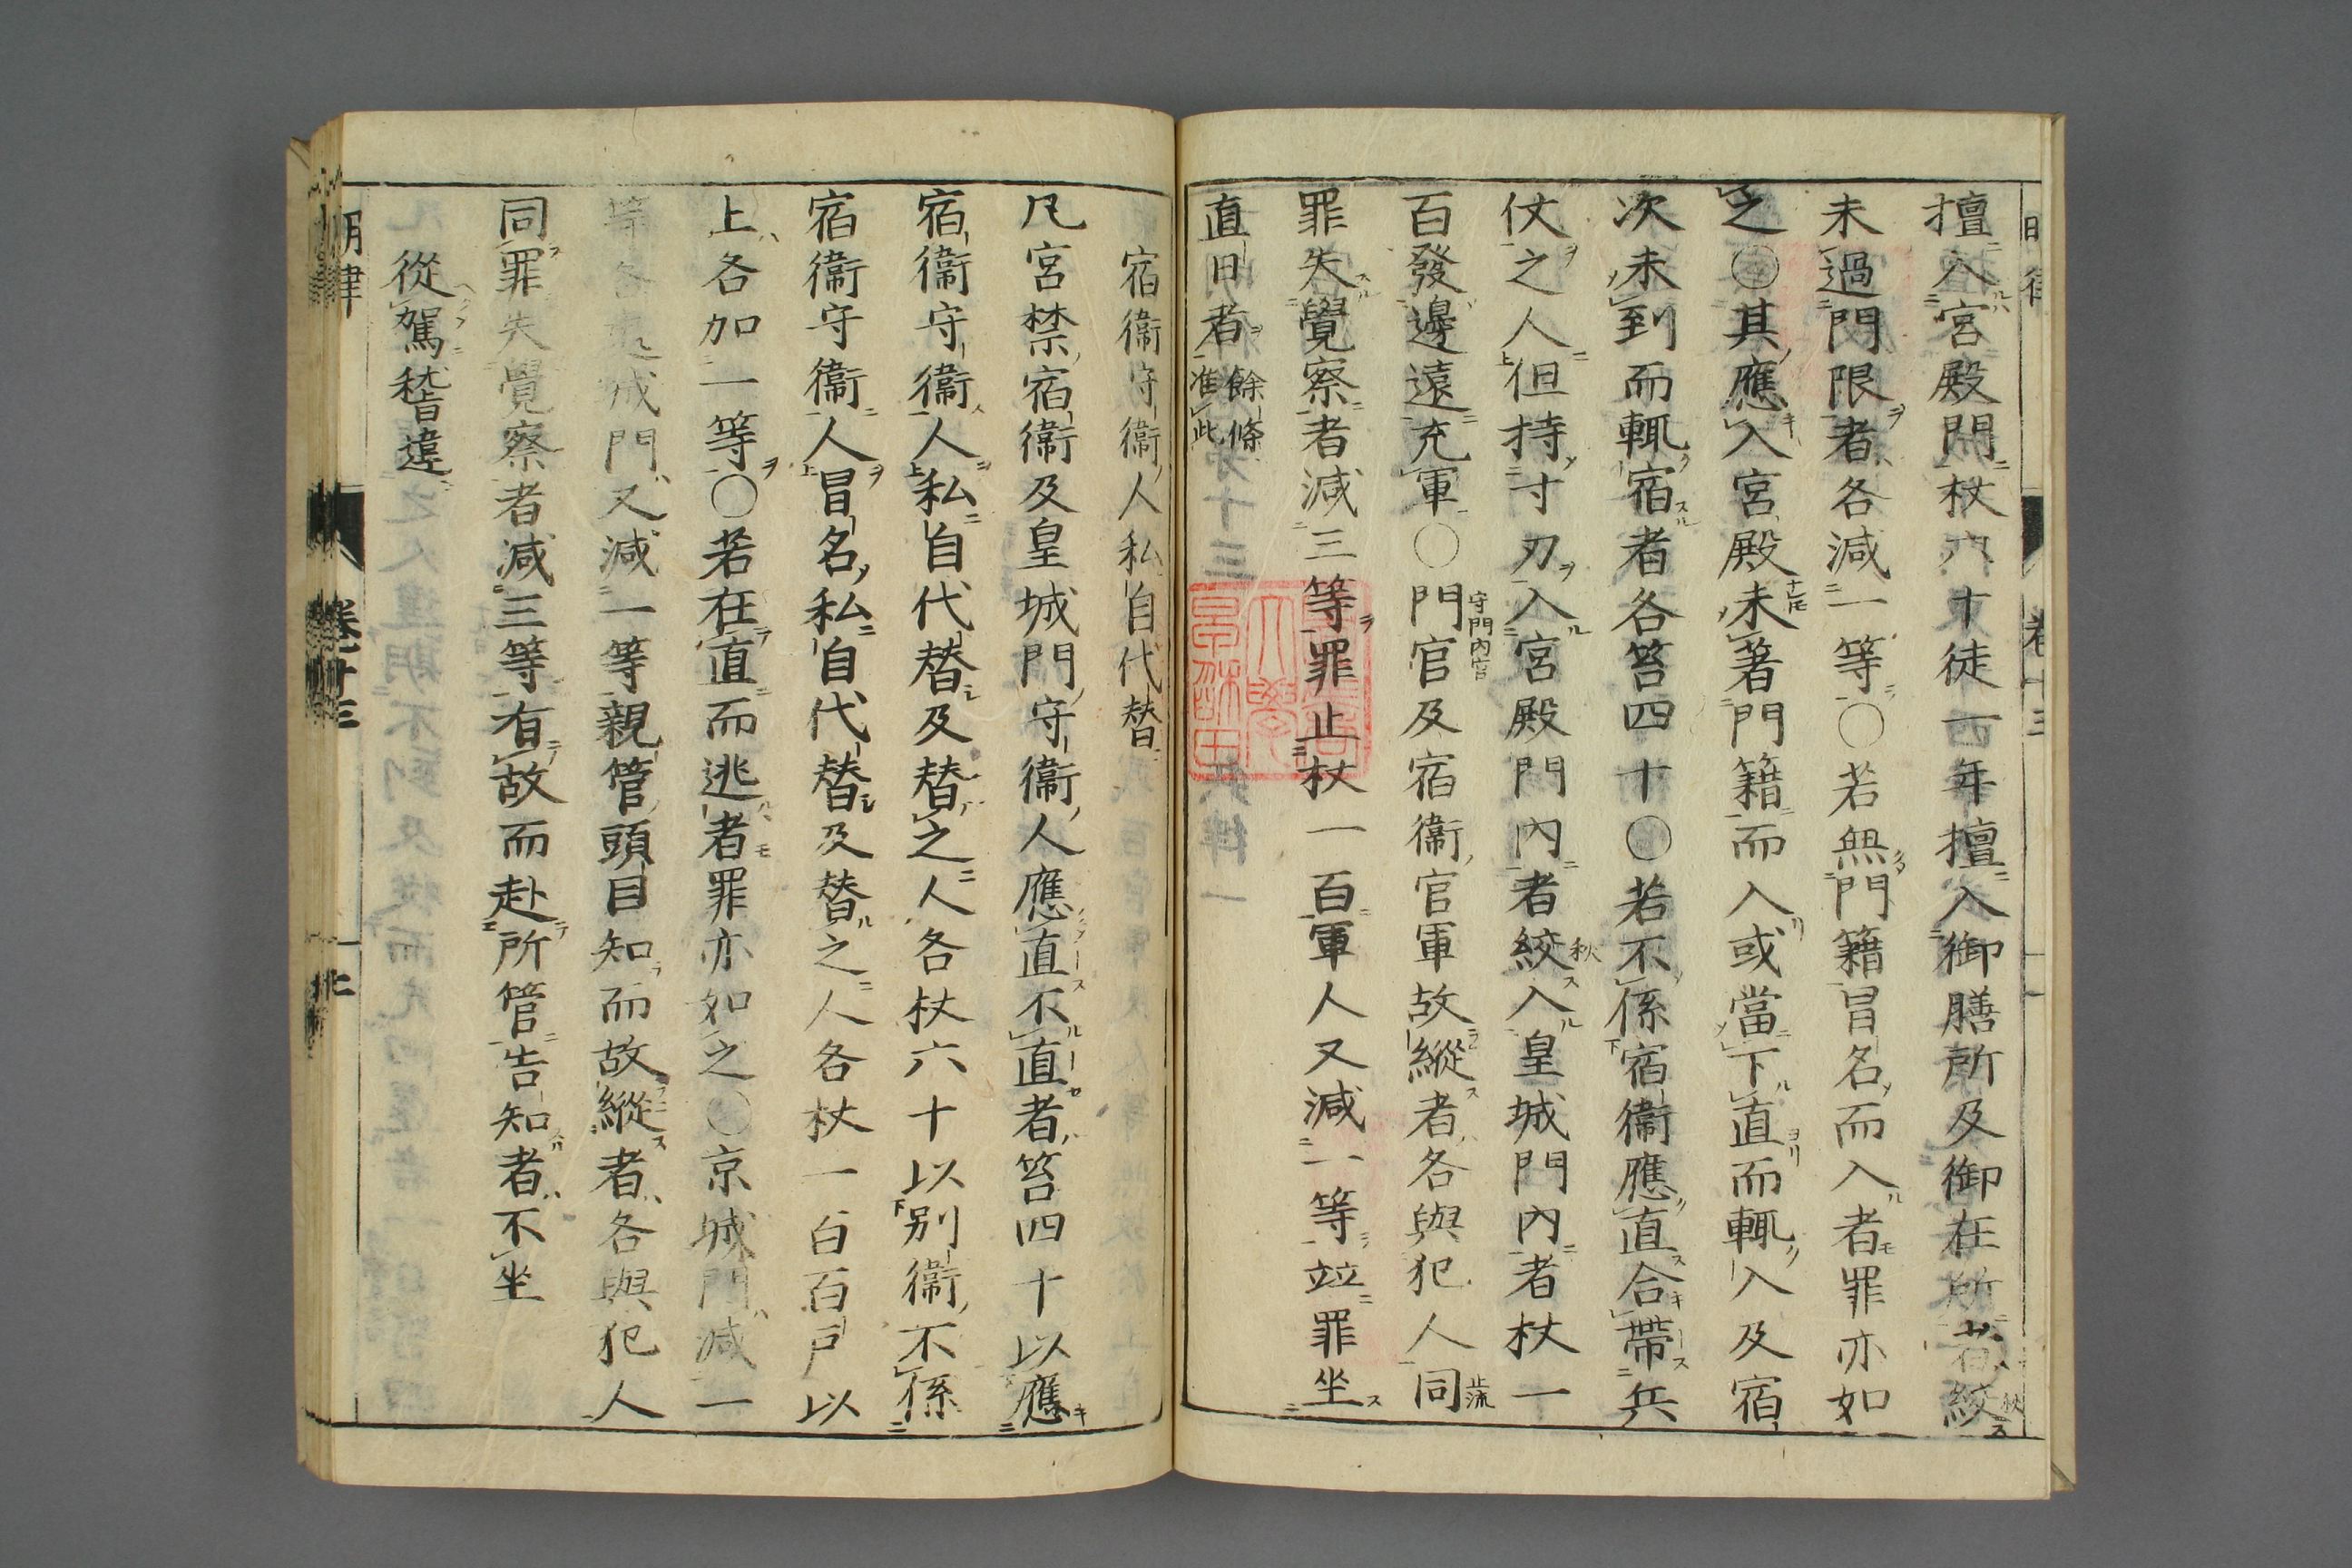 擅入宮殿門杖六十徒一年擅入御膳所及御在所者絞
未過門限者各減一等〇若無門籍冒名而入者罪亦如
之〇其應入宮殿未著門籍而入或當下直而輒入及宿
次未到而輒宿者各笞四十〇若不係宿衞應直合帶兵
仗之人但持寸刃入宮殿門內者絞入皇城門內者杖一
百發邊遠充軍〇門官及宿衞官軍故縱者各與犯人同
罪失覺察者減三等罪止杖一百軍人又減一等竝罪坐
直日者餘條准此
宿衞守衞人私自代替
凡宮禁宿衞及皇城門守衞人應直不直者笞四十以應
宿衞守衞人私自代替及替之人各杖六十以别衞不係
宿衞守衞人冒名私自代替及替之人各杖一百百戸以
上各加一等〇若在直而逃者罪亦如之〇京城門減一
等各處城門又減一等親管頭目知而故縱者各與犯人
同罪失覺察者減三等有故而赴所管告知者不坐
從駕稽違
明律
卷十三